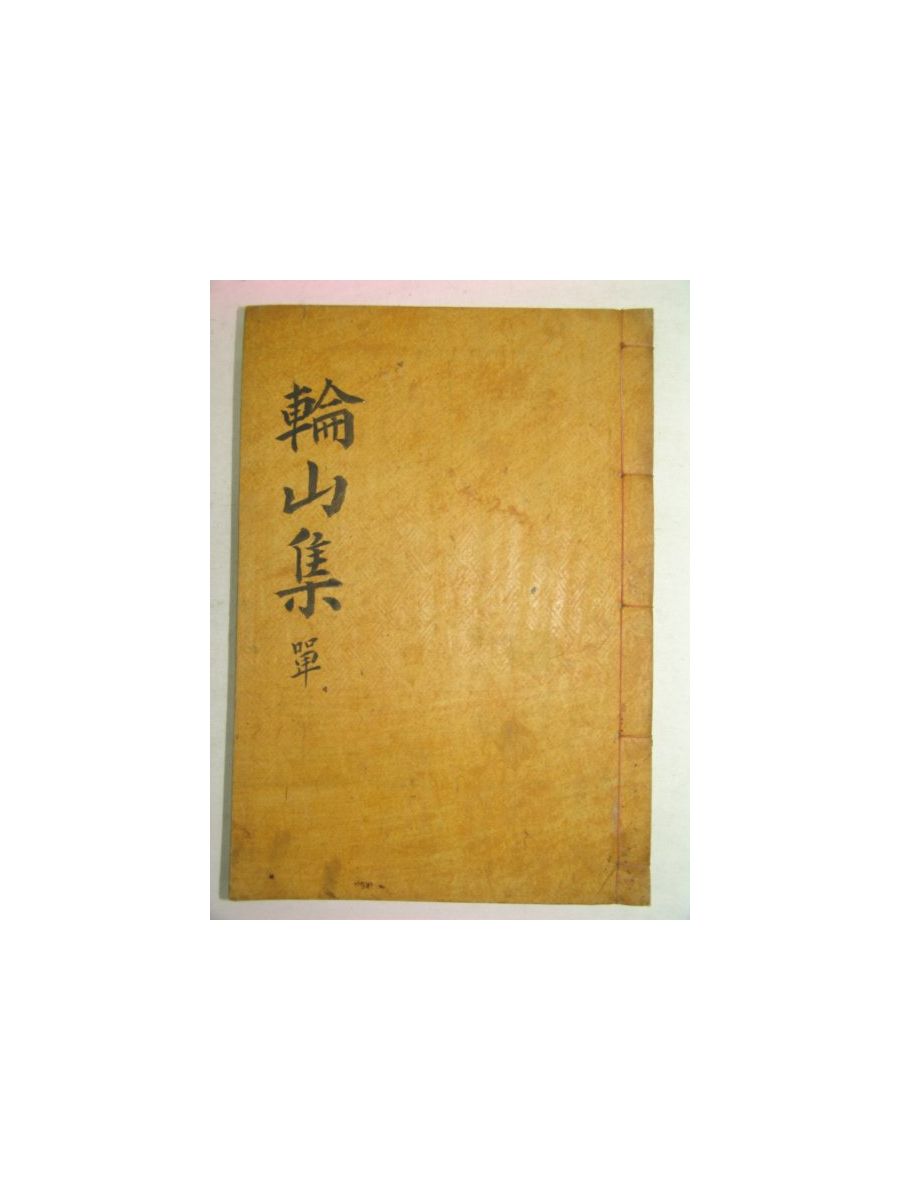 輪山集
單